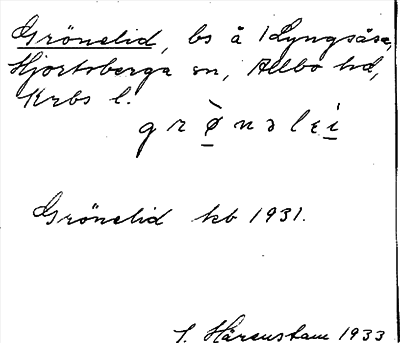 Grönelid, bs å 1 Lyngsåsa,
Hjortsberga sn, Allbo hd,
Krbs l.
grø̀nəlɛi
Grönelid kb 1931.
J. Hårenstam 1933